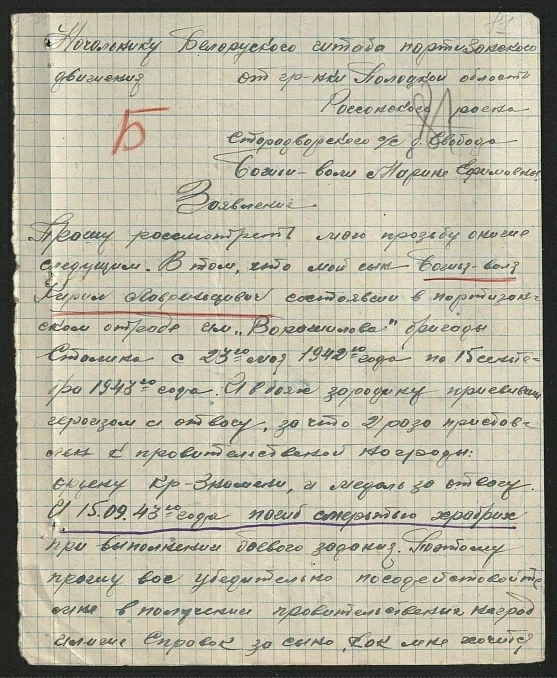 Начальнику Белоруского штаба партизанского
движения от гр-нки Полоцкой области
Россонского р-она
Стародворского с/с д. Свобода
Б
Божьи-воли Марии Ефимовны
Заявление
Прошу рассмотреть мою прозьбу о
следущим. В том, что мой сын Божья-воля
Кирил Лаврентьевич состоявши в партизан-
ском отряде им. "Ворошилова" бригады
Сталина с 23го мая 1942го года по 15 сентя-
бря 1943го года. И в боях за родину
героизм и отвагу, за что 2 раза представ-
лен к правительственой награды:
ордену Кр-Знамени, и медаль за отвагу.
И 15.09.43го года погиб смертью храбрих
при выполнении боевого задания. Поэтому
прошу вас убедительно посодействовать
мне в получении правительственых наград
или же Справок за сына, как мне хочется